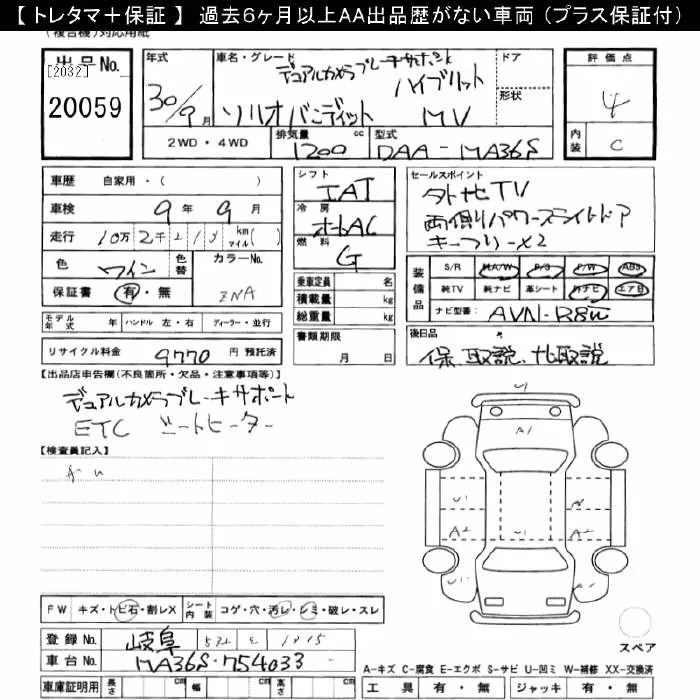 【 トレタマ＋保証 】 過去6ヶ月以上AA出品歴がない車両 (プラス保証付)
(複合機) 対応用紙
出品No.
[2032]
20059
年式
30/9月
車名・グレード
デュアルカメラブレーキサポート
ハイブリット
ソリオバンディット MV
ドア
形状
評価点
4
内装
C
2WD・4WD
排気量 1200 cc
型式 DAA-MA36S
車歴 自家用・( )
車検 9年9月
走行 10万2千 km マイル( )
色 ワイン
色替
カラーNo. ZNA
保証書 有・無
モデル年式 年
ハンドル 左・右
ディーラー・並行
リサイクル料金 9770 円 預託済
シフト
IAT
冷房
オートAC
燃料
G
乗車定員 名
積載量 kg
総重量 kg
書類期限
月 日
セールスポイント
外ナビTV
両側パワースライドドア
キーフリー×2
装備品
S/R 純A/W P/S P/W ABS
純TV 純ナビ 革シート 外ナビ エアB
ナビ型番: AVN-R8W
後日品
保、取説、ナビ取説
【出品店申告欄(不良箇所・欠品・注意事項等)】
デュアルカメラブレーキサポート
ETC シートヒーター
【検査員記入】
FW キズ・トビ石・割レX
シート内装 コゲ・穴・汚レ・シミ・破レ・スレ
登録No. 岐阜
車台No. MA36S-754033
車庫証明用 長さ cm 幅 cm 高さ cm
U1
A1
U1
A2
A2
U1
スペア
A-キズ C-腐食 E-エクボ S-サビ U-凹ミ W-補修 XX-交換済
工具 有・無 ジャッキ 有・無